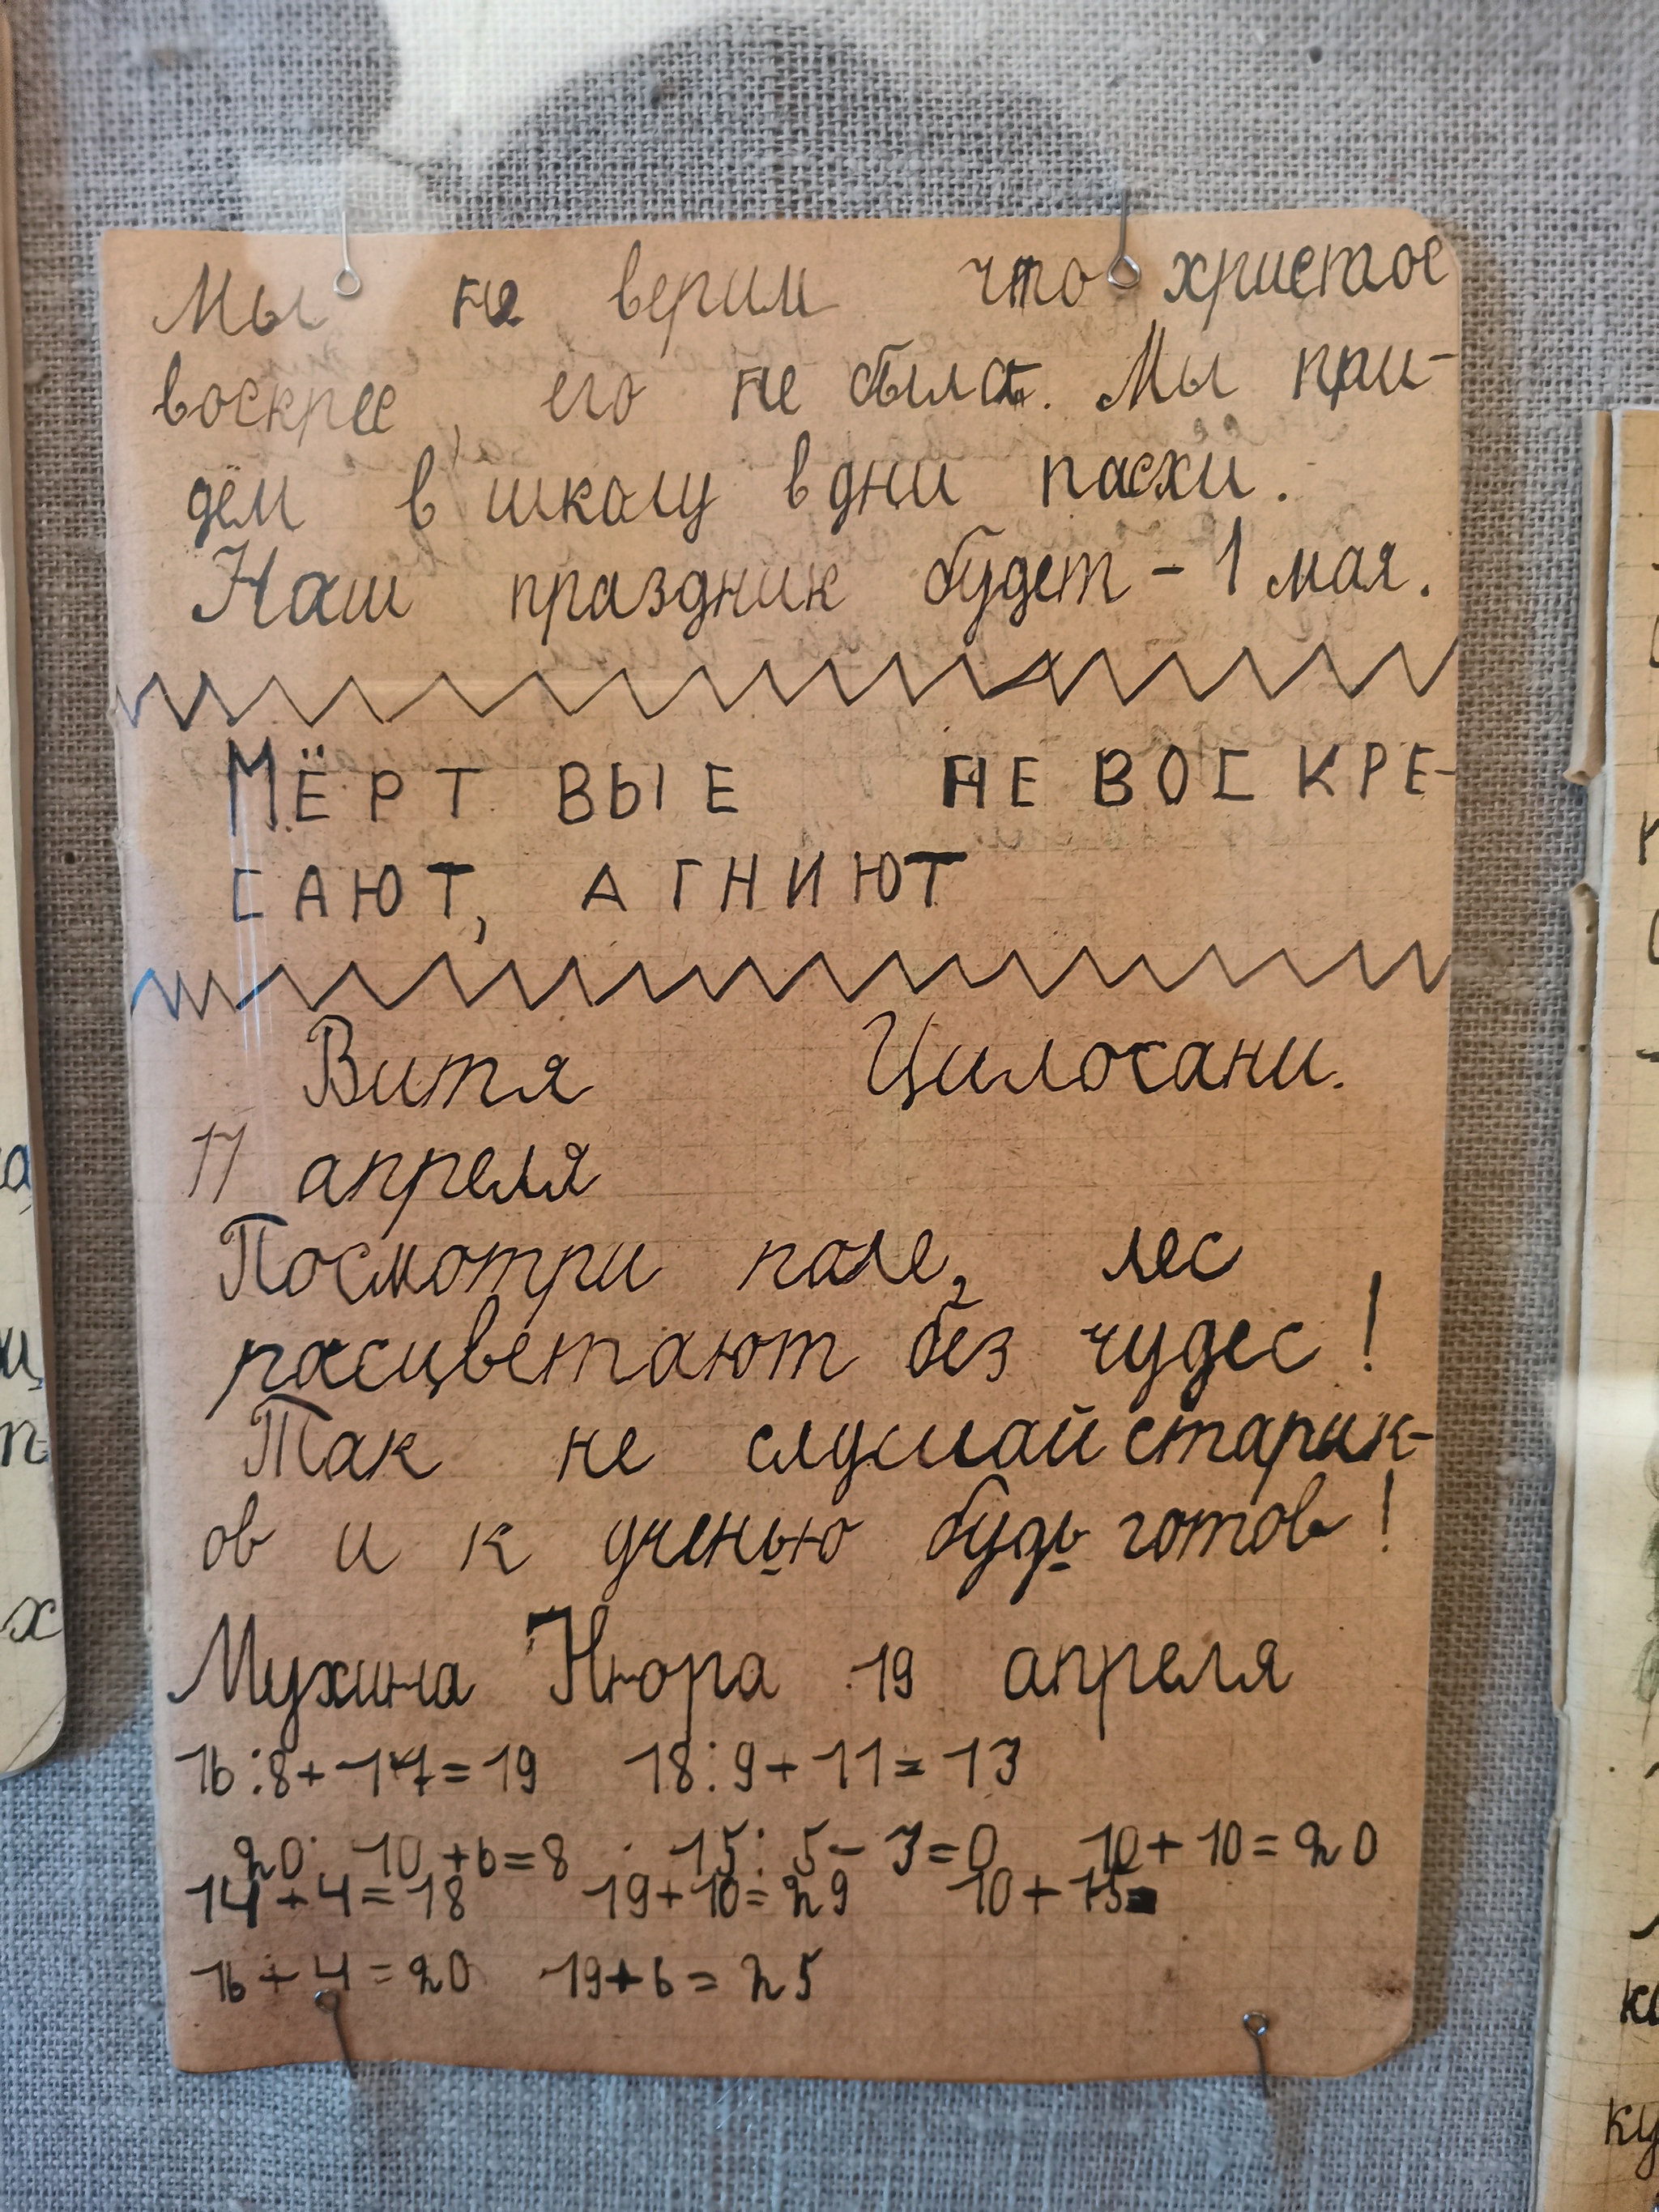 Мы не верим что христос
воскрес, его не было. Мы при-
дём в школу в дни пасхи.
Наш праздник будет - 1 мая.
МЁРТВЫЕ НЕ ВОСКРЕ-
САЮТ, А ГНИЮТ
Витя Цилосани.
17 апреля
Посмотри поле, лес
расцветают без чудес!
Так не слушай старик-
ов и к ученью будь готов!
Мухина Нюра 19 апреля
16:8+17=19 18:9+11=13
20:10+6=8 15:5-3=0 10+10=20
14+4=18 19+10=29 10+15=
16+4=20 19+6=25